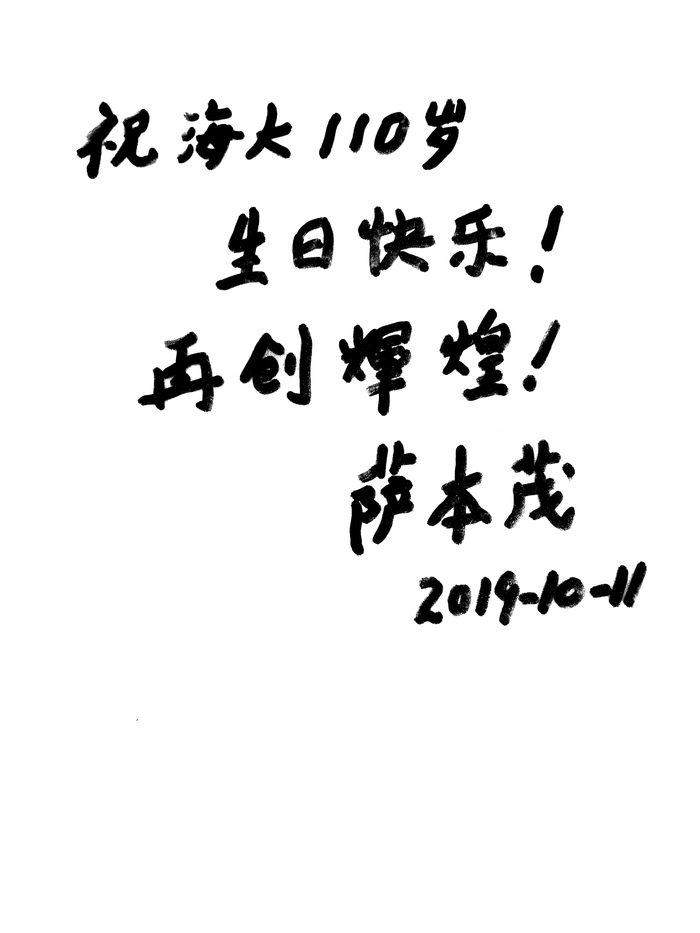 祝海大110岁
生日快乐!
再创輝煌!
萨本茂
2019-10-11